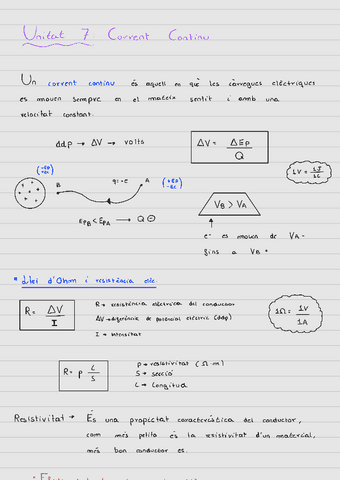 Unitat 7 Corrent Continu
Un corrent continu és aquell en què les càrregues elèctriques
es mouen sempre en el mateix sentit i amb una
velocitat constant.
ddp → ΔV → volts
ΔV = ΔEp / Q
1V = 1J / 1C
B
A
q = -e
EpB < EpA → Q ⊖
VB > VA
e⁻ es mouen de VA -
fins a VB +
* Llei d'Ohm i resistència elèc.
R = ΔV / I
R → resistència elèctrica del conductor
ΔV → diferència de potencial elèctric (ddp)
I → intensitat
1Ω = 1V / 1A
R = ρ L / S
ρ → resistivitat (Ω·m)
S → secció
L → Longitud
Resistivitat → És una propietat característica del conductor,
com més petita és la resistivitat d'un material,
més bon conductor és.